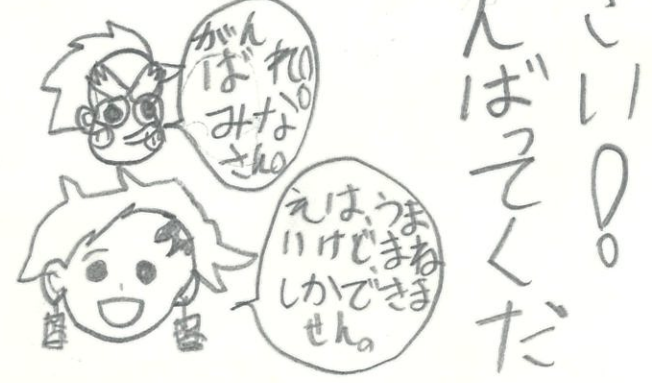 い！
んばってくだ
がん
ばれ!!
みな
さん。
えは、うま
いけど、まね
しかできま
せん。